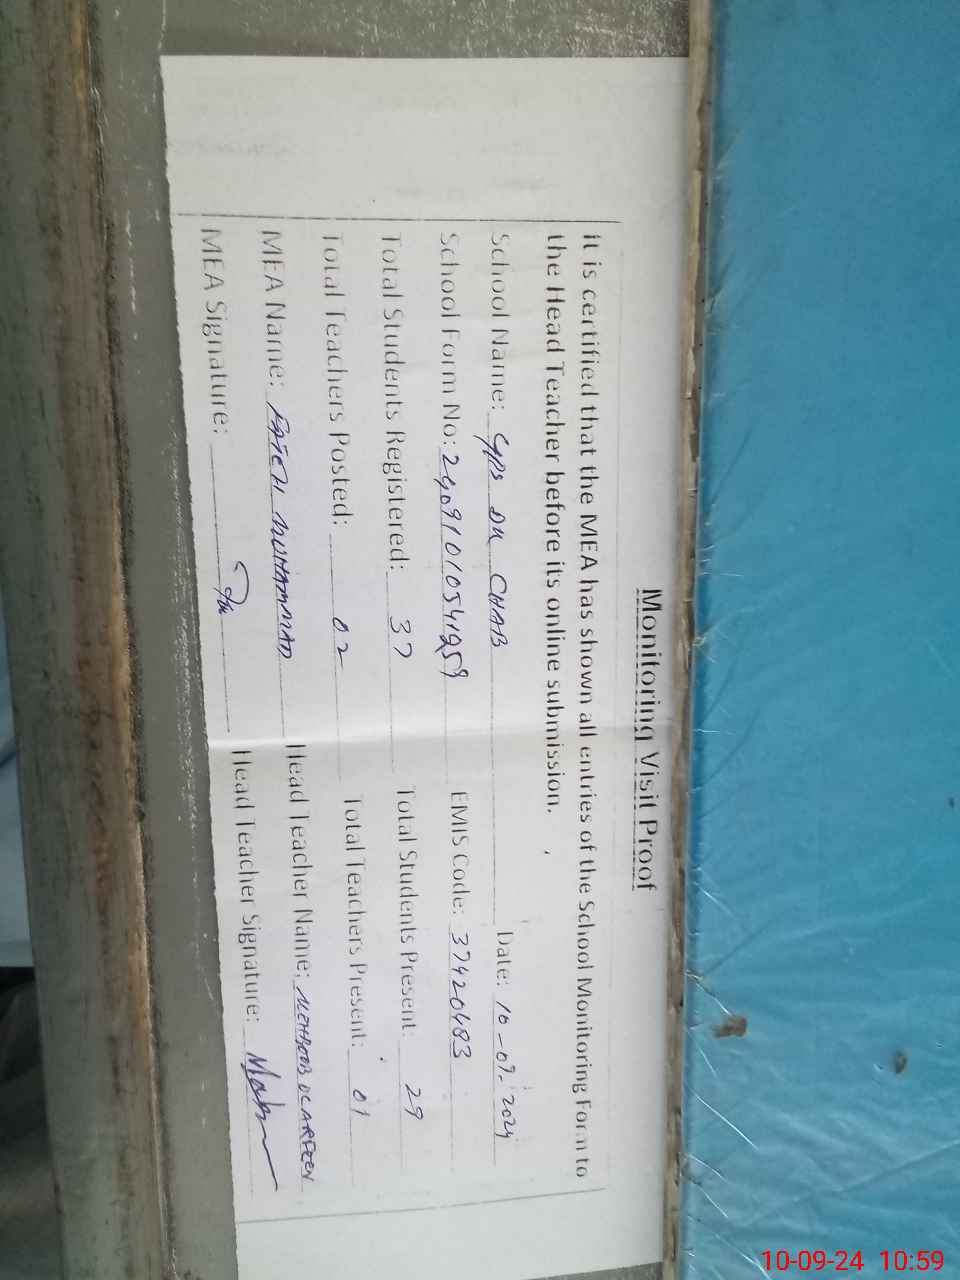 Monitoring Visit Proof
It is certified that the MEA has shown all entries of the School Monitoring Form to
the Head Teacher before its online submission.
School Name: GPS DK CHAB Date: 10-09-2024
School Form No: EMIS Code: 37420483
Total Students Registered: 37 Total Students Present: 29
Total Teachers Posted: 02 Total Teachers Present: 01
MEA Name: FATEH MUHAMMAD Head Teacher Name:
MEA Signature: Head Teacher Signature:
10-09-24 10:59